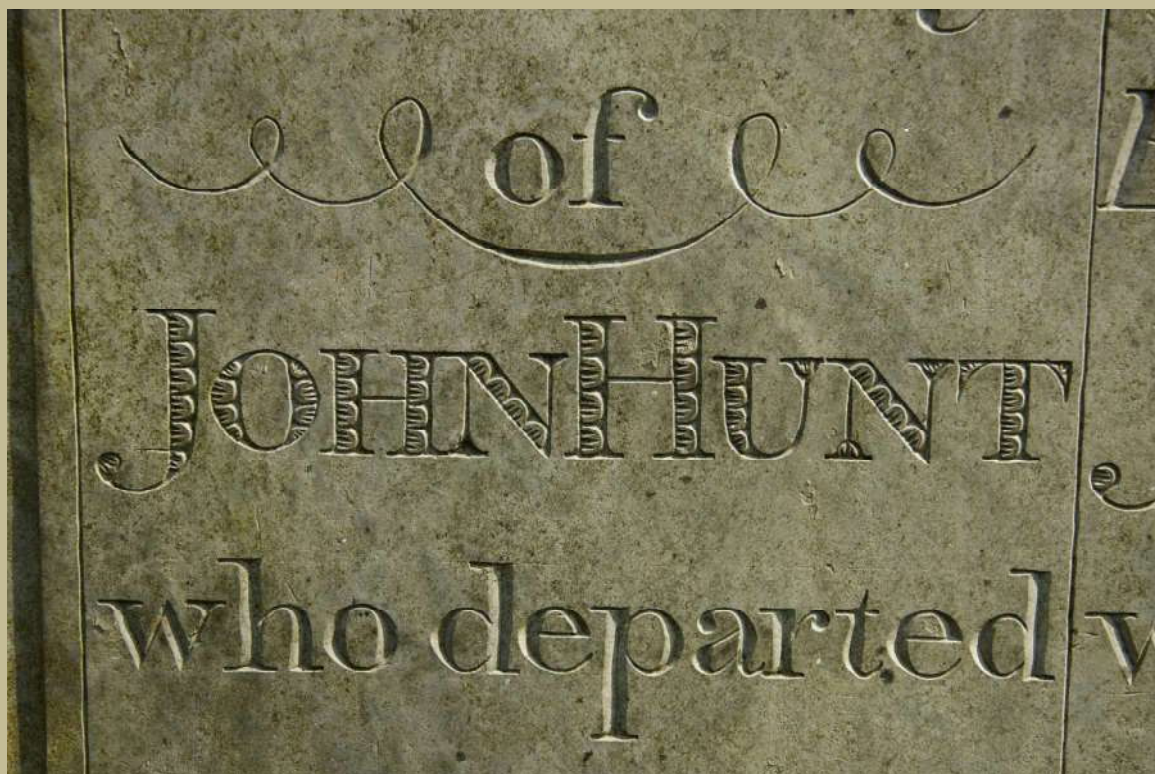 of
JOHN HUNT
who departed